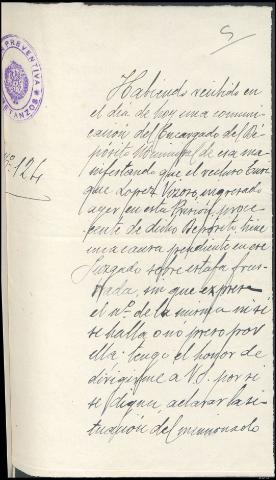 5
PREVENTIVA
BETANZOS
Nº 124
Habiendo recibido en
el día de hoy una comuni-
cación del Encargado del De-
pósito Municipal de esa ma-
nifestando que el recluso Enri-
que Lopez Vizoso, ingresado
ayer en esta Prisión, proce-
dente de dicho Depósito, tiene
una causa pendiente en ese
Juzgado sobre estafa frus-
trada, sin que exprese
el nº. de la misma ni si
se halla ó nó preso por
ella; tengo el honor de
dirigirme a V.S. por si
se digna, aclarar la si-
tuación del mencionado